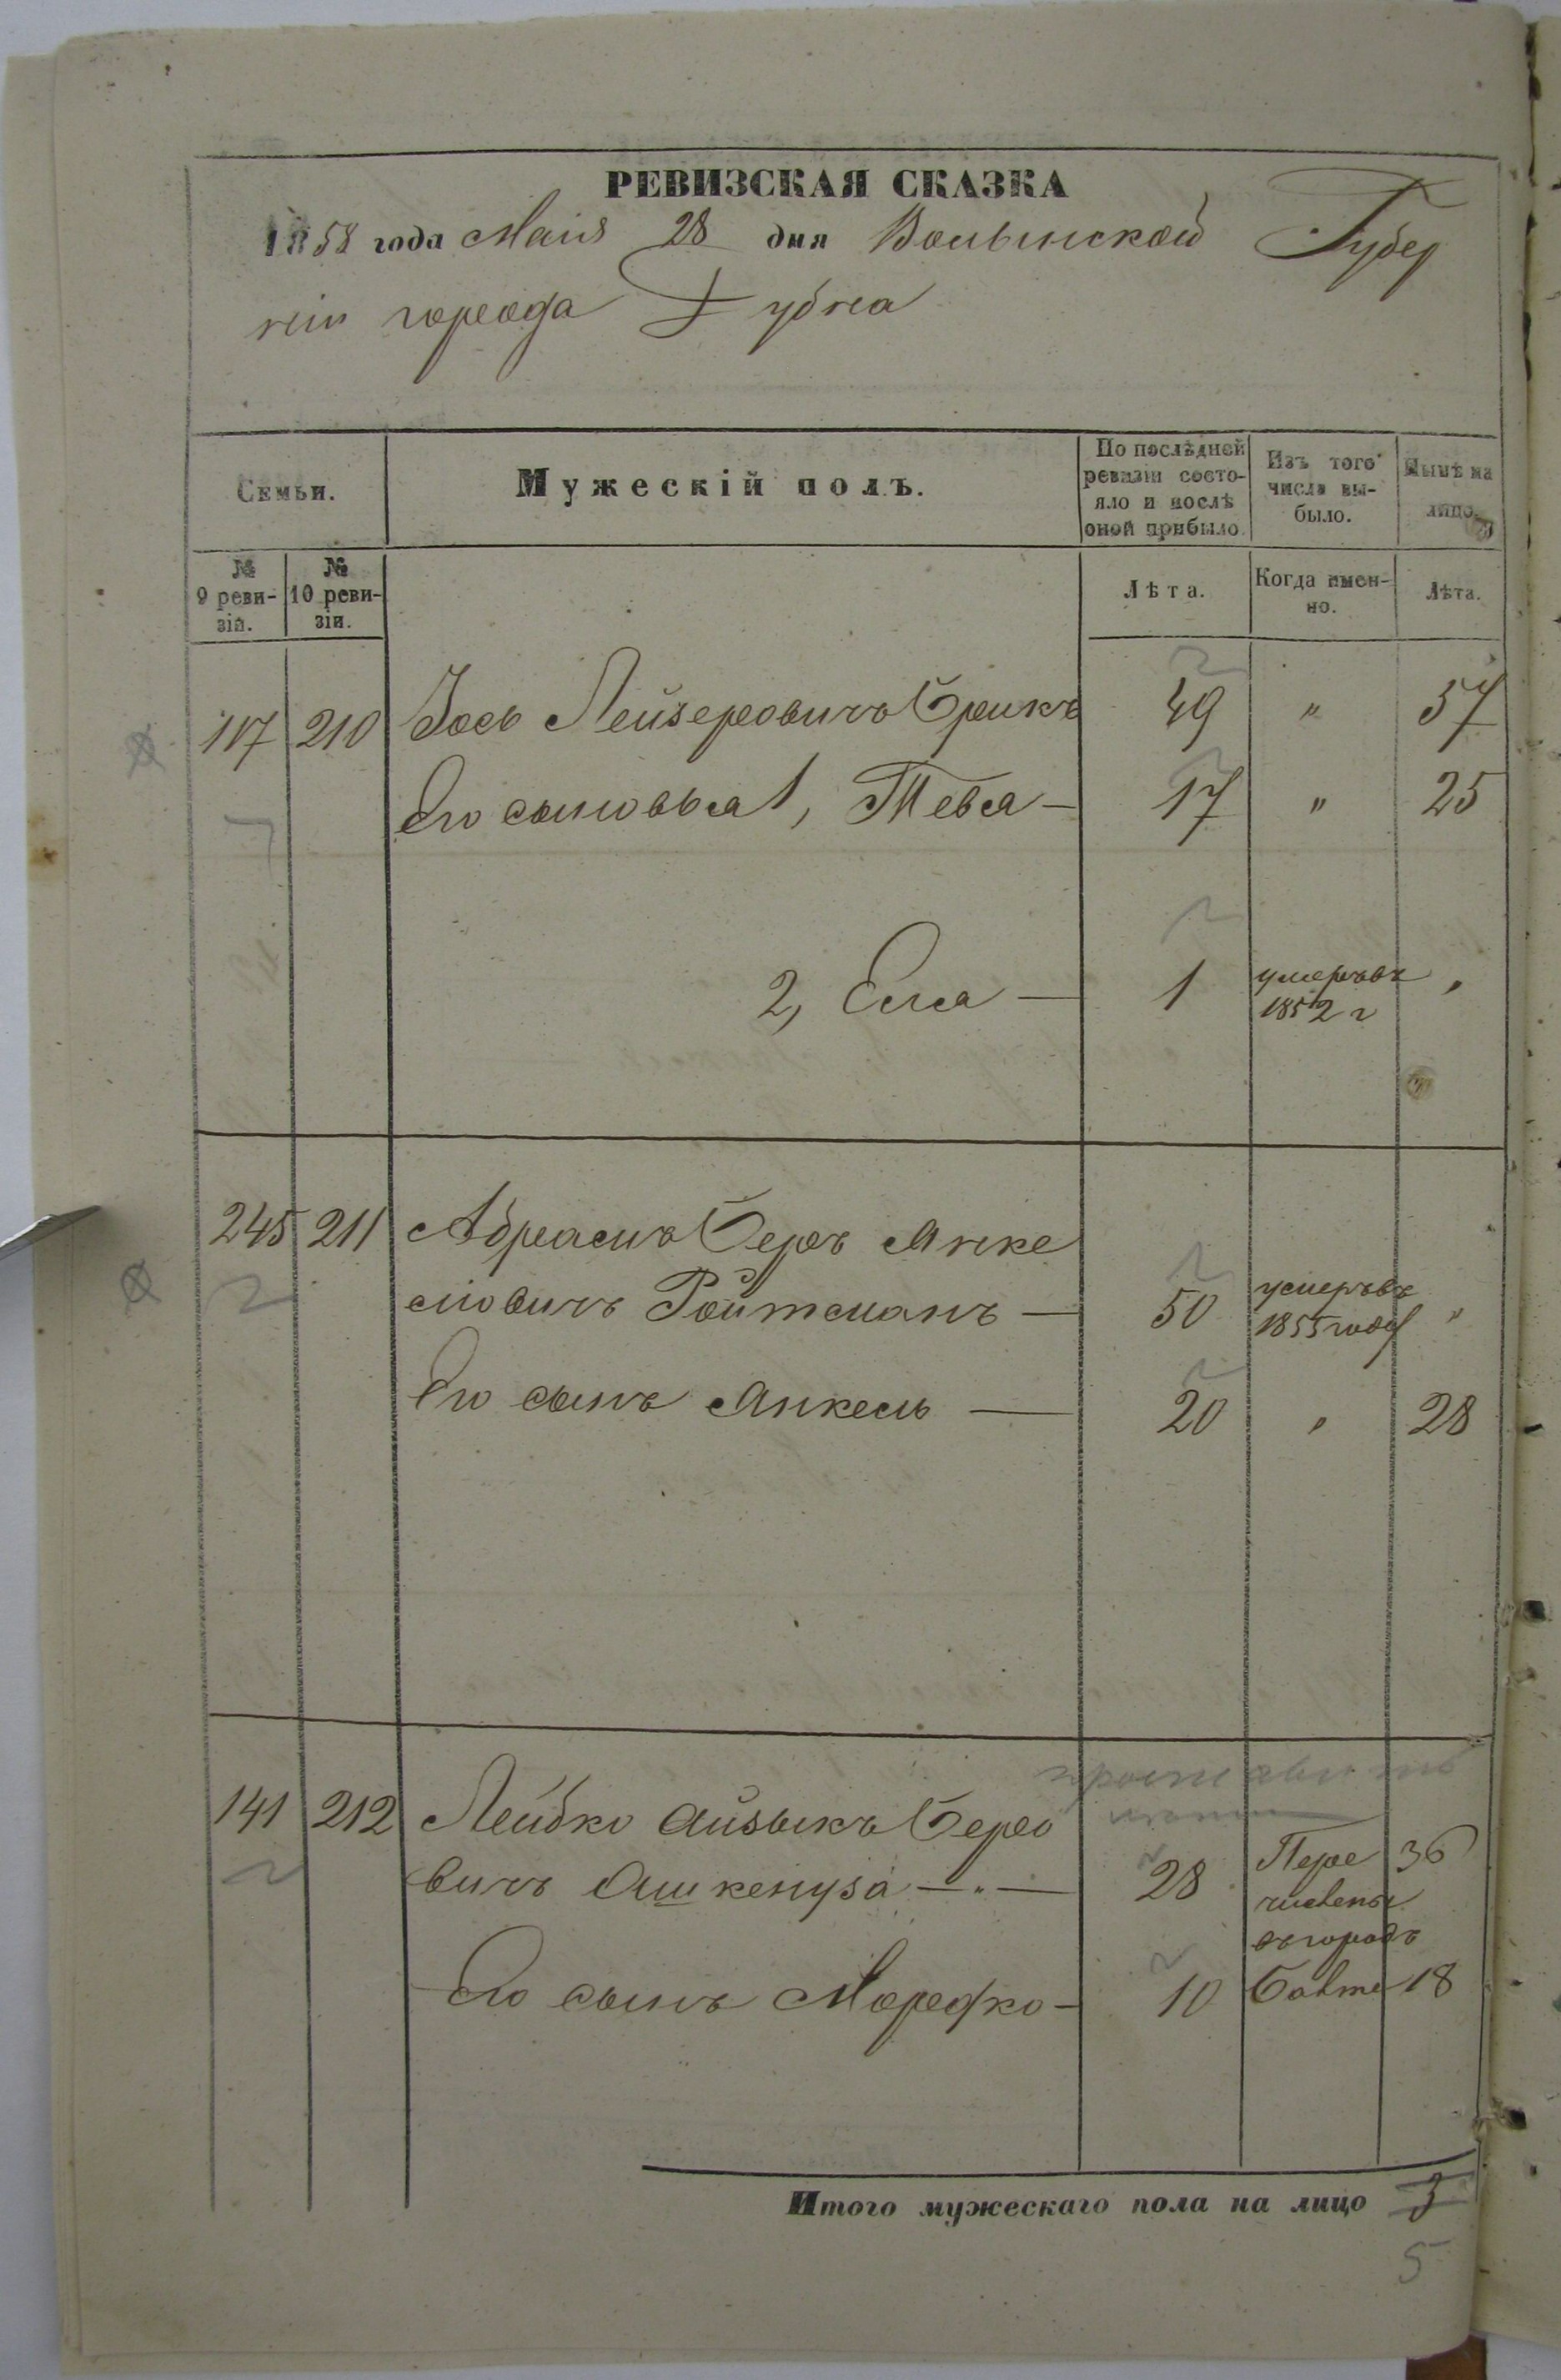 РЕВИЗСКАЯ СКАЗКА
1858 года Маія 28 дня Волынской Губер
ніи города Дубна
Семьи.
Мужескій полъ.
По послѣдней ревизіи состо-
яло и послѣ оной прибыло.
Изъ того числа вы-
было.
Нынѣ на лицо.
№ 9 реви-
зіи.
№ 10 реви-
зіи.
Лѣта.
Когда имен-
но.
Лѣта.
117 210 Іось Лейзеровичъ Брикъ 49 " 57
Его сыновья 1, Тевя — 17 " 25
2, Еля — 1 умеръ въ "
1852 г
245 211 Абрамъ Беръ Янке
лювичъ Ройтманъ — 50 умеръ въ "
1855 году
Его сынъ Янкель — 20 " 28
141 212 Лейбко Айзыкъ Беро
вичъ Ашкенуза — " — 28 Пере 36
числены
въ городъ
Его сынъ Мордко — 10 Балта 18
Итого мужескаго пола на лицо 3
5